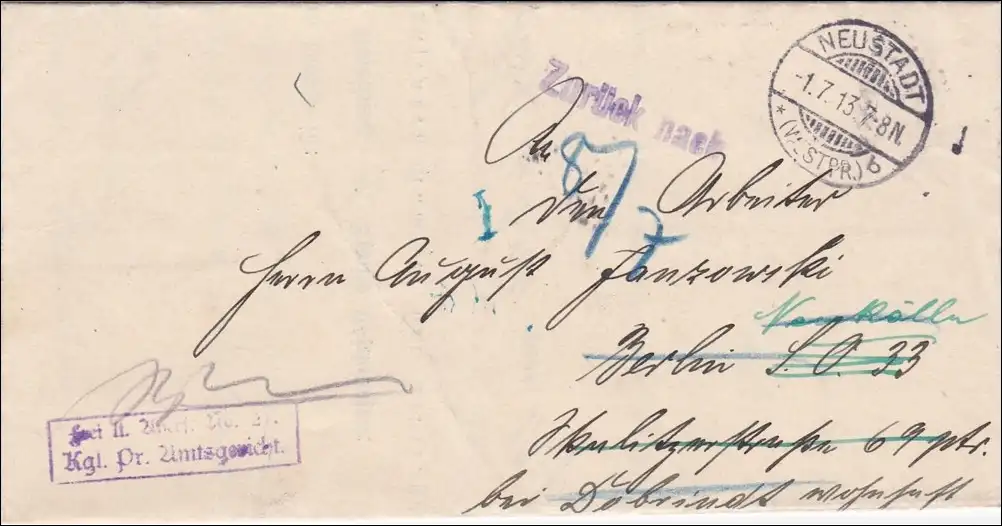 NEUSTADT
-1.7.13.7-8N.
* (WESTPR.) b
Zurück nach
An
8/7
den Arbeiter
I
Herrn August Janzowski
Neukölln
Berlin S.O. 33
Skalitzerstraße 69 ptr.
bei Dobrindt wohnhaft
frei lt. Avers. No. 21.
Kgl. Pr. Amtsgericht.